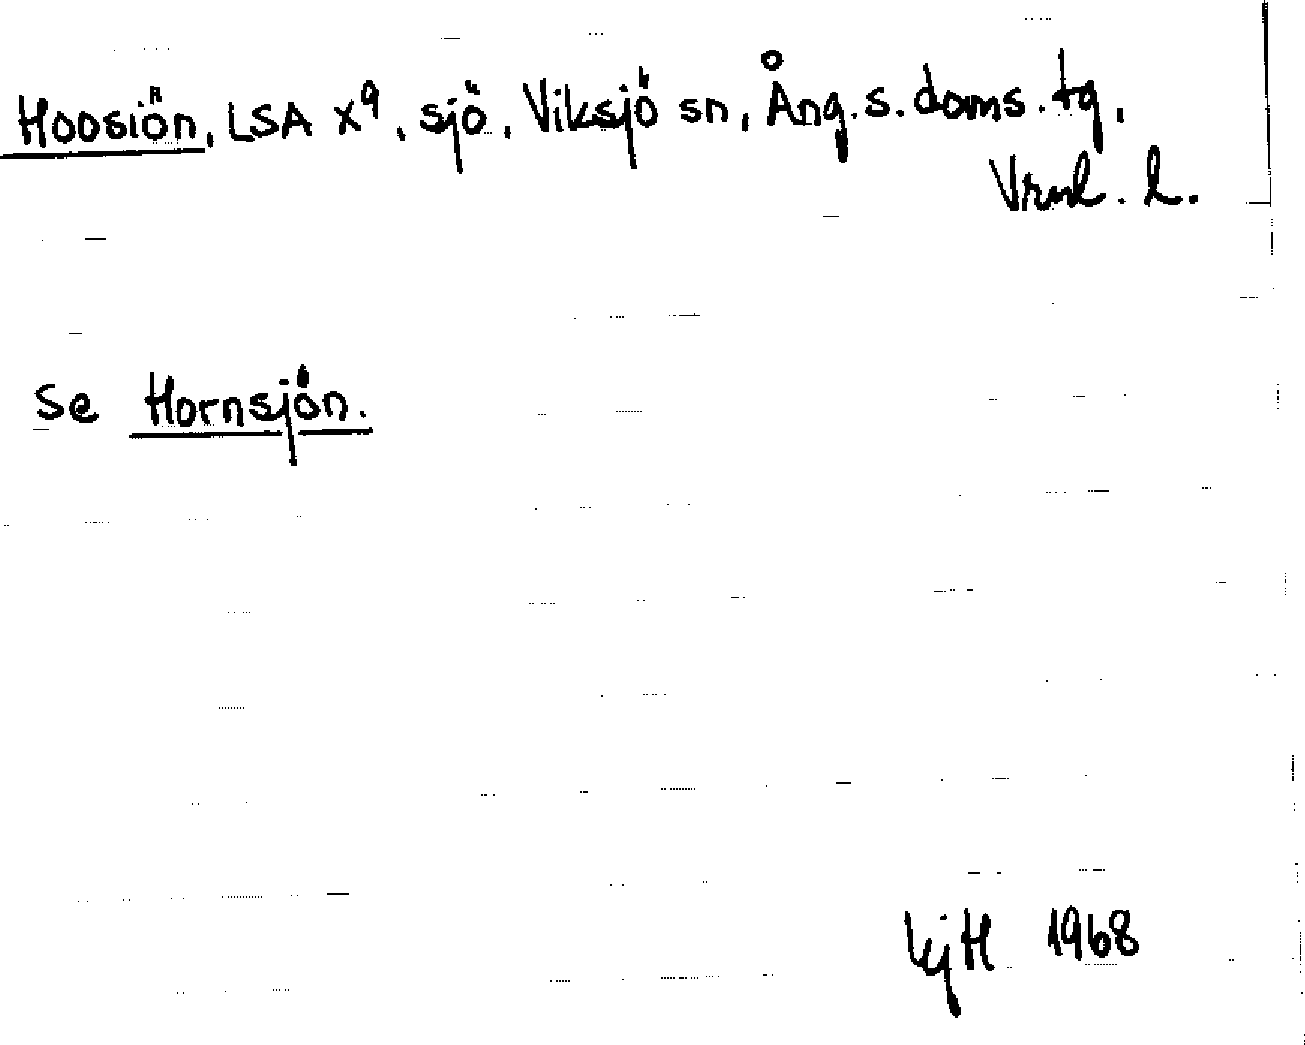 Hoosiön, LSA X9, sjö, Viksjö sn, Ång. s. doms. tg,
Vrnl. l.
Se Hornsjön.
1968